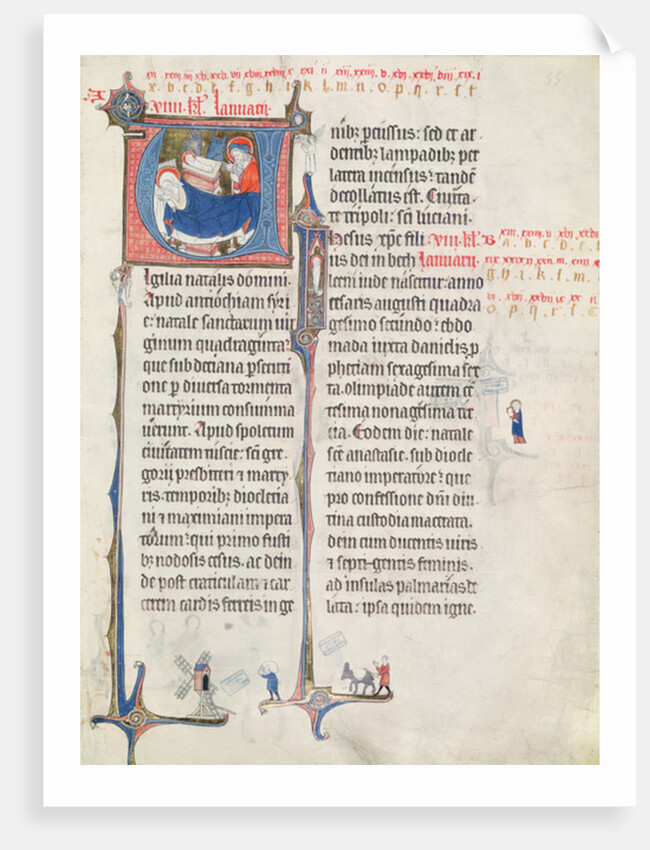 A xii xxiii iiii xv xxvi vii xviii xxviii x xxi ii xiii xxiiii v xvi xxvi viii xix i
b c d e f g h i k l m n o p q r s t
viiii kl Ianuarii
igilia natalis domini.
Apud antiochiam syri
e: natale sanctarum uir
ginum quadraginta:
que sub deciana persecuti
one p diuersa tormenta
martyrium consumma
uerunt. Apud spoletum
ciuitatem tuscie: sci gre
gorii presbiteri & marty
ris. temporibz dioclecia
ni & maximiani impera
torum: qui primo fusti
bz nodosis cesus. ac dein
de post craticulam & car
cerem cardis ferreis in ge
nibz percussus: sed et ar
dentibz lampadibz per
latera incensus: tandē
decollatus est. Ciuita
te tripoli: sci luciani.
hesus xpc fili viii kl
ius dei in beth Ianuarii.
leem iude nascitur: anno
cesaris augusti quadra
gesimo secundo: ebdo
mada iuxta danielis p
phetiam sexagesima sex
ta. olimpiade autem cē
tesima nonagesima ter
cia. Eodem die: natale
sce anastasie. sub diocle
tiano imperatore: que
pro confessione dni diu
tina custodia macerata.
dein cum ducentis uiris
& septi-gentis feminis.
ad insulas palmarias de
lata: ipsa quidem igne.
B xiii xxiiii v xvi xxvii
a b c d e f
g h i k l m
o p q r s t